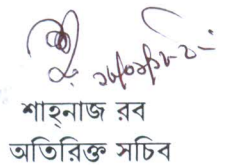 শাহ্‌নাজ রব
অতিরিক্ত সচিব